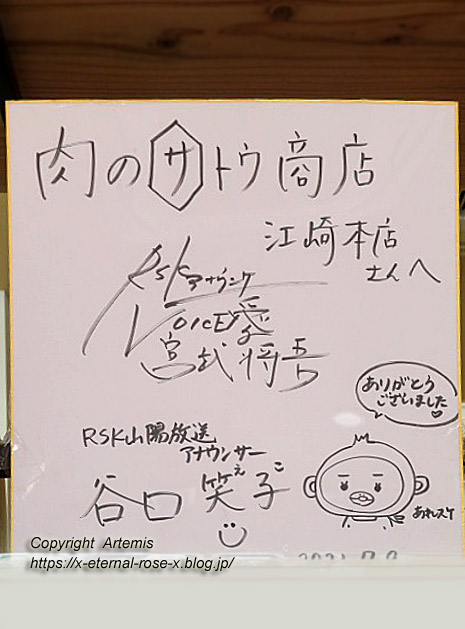 肉のサトウ商店
江崎本店
さんへ
RSKアナウンサー
VOICE愛
宮武将吾
ありがとう
ございました
RSK山陽放送
アナウンサー
谷口笑子
え
Copyright Artemis
https://x-eternal-rose-x.blog.jp/